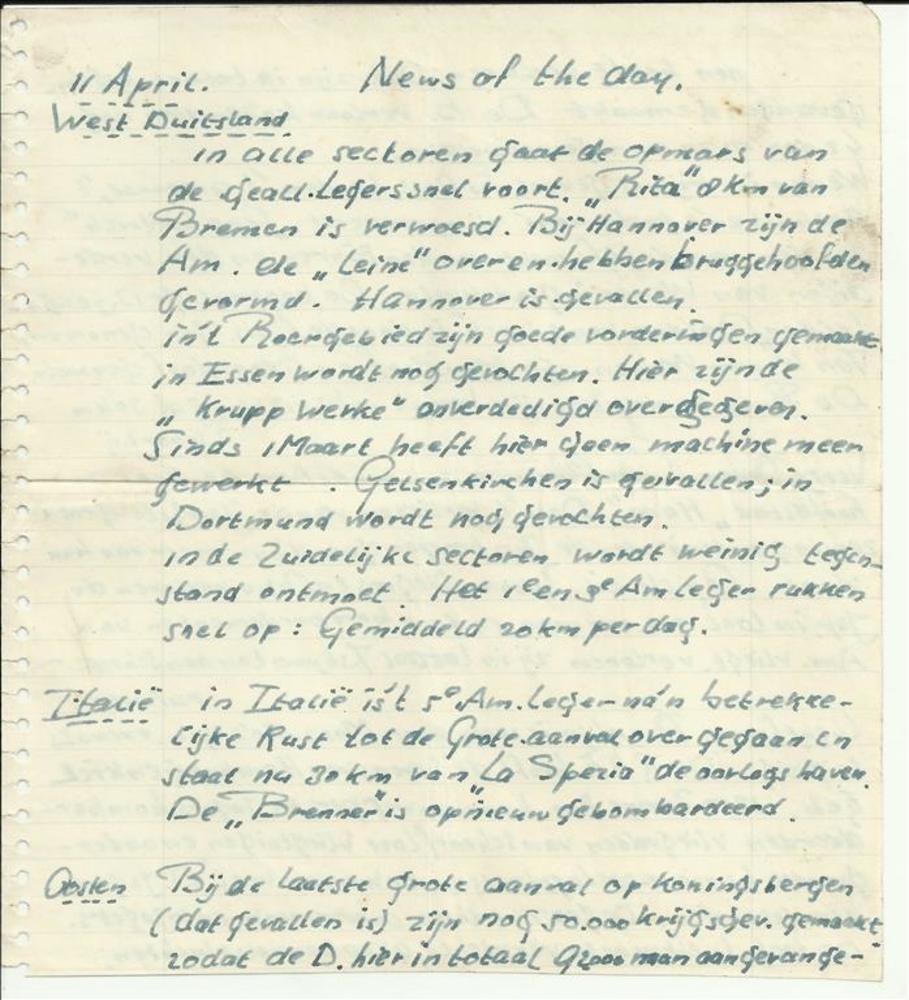 11 April. News of the day.
West Duitsland.
in alle sectoren gaat de opmars van
de geall. Legers snel voort. „Rita" 8 km van
Bremen is verwoesd. Bij Hannover zijn de
Am. de „Leine" over en hebben bruggehoofden
gevormd. Hannover is gevallen.
in't Roergebied zijn goede vorderingen gemaakt
in Essen wordt nog gevochten. Hier zijn de
„Krupp Werke" onverdedigd overgegeven.
Sinds 1 Maart heeft hier geen machine meer
gewerkt. Gelsenkirchen is gevallen; in
Dortmund wordt nog gevochten.
in de Zuidelijke sectoren wordt weinig tegen-
stand ontmoet. Het 1e en 3e Am Leger rukken
snel op: Gemiddeld 20 km per dag.
Italië in Italië is't 5e Am. Leger na'n betrekke-
lijke Rust tot de Grote aanval over gegaan en
staat nu 30 km van „La Spezia" de oorlogshaven.
De „Brenner" is opnieuw gebombardeerd.
Oosten Bij de laatste grote aanval op Koningsbergen
(dat gevallen is) zijn nog 50.000 krijgsgev. gemaakt
zodat de D. hier in totaal 92000 man aan gevange-